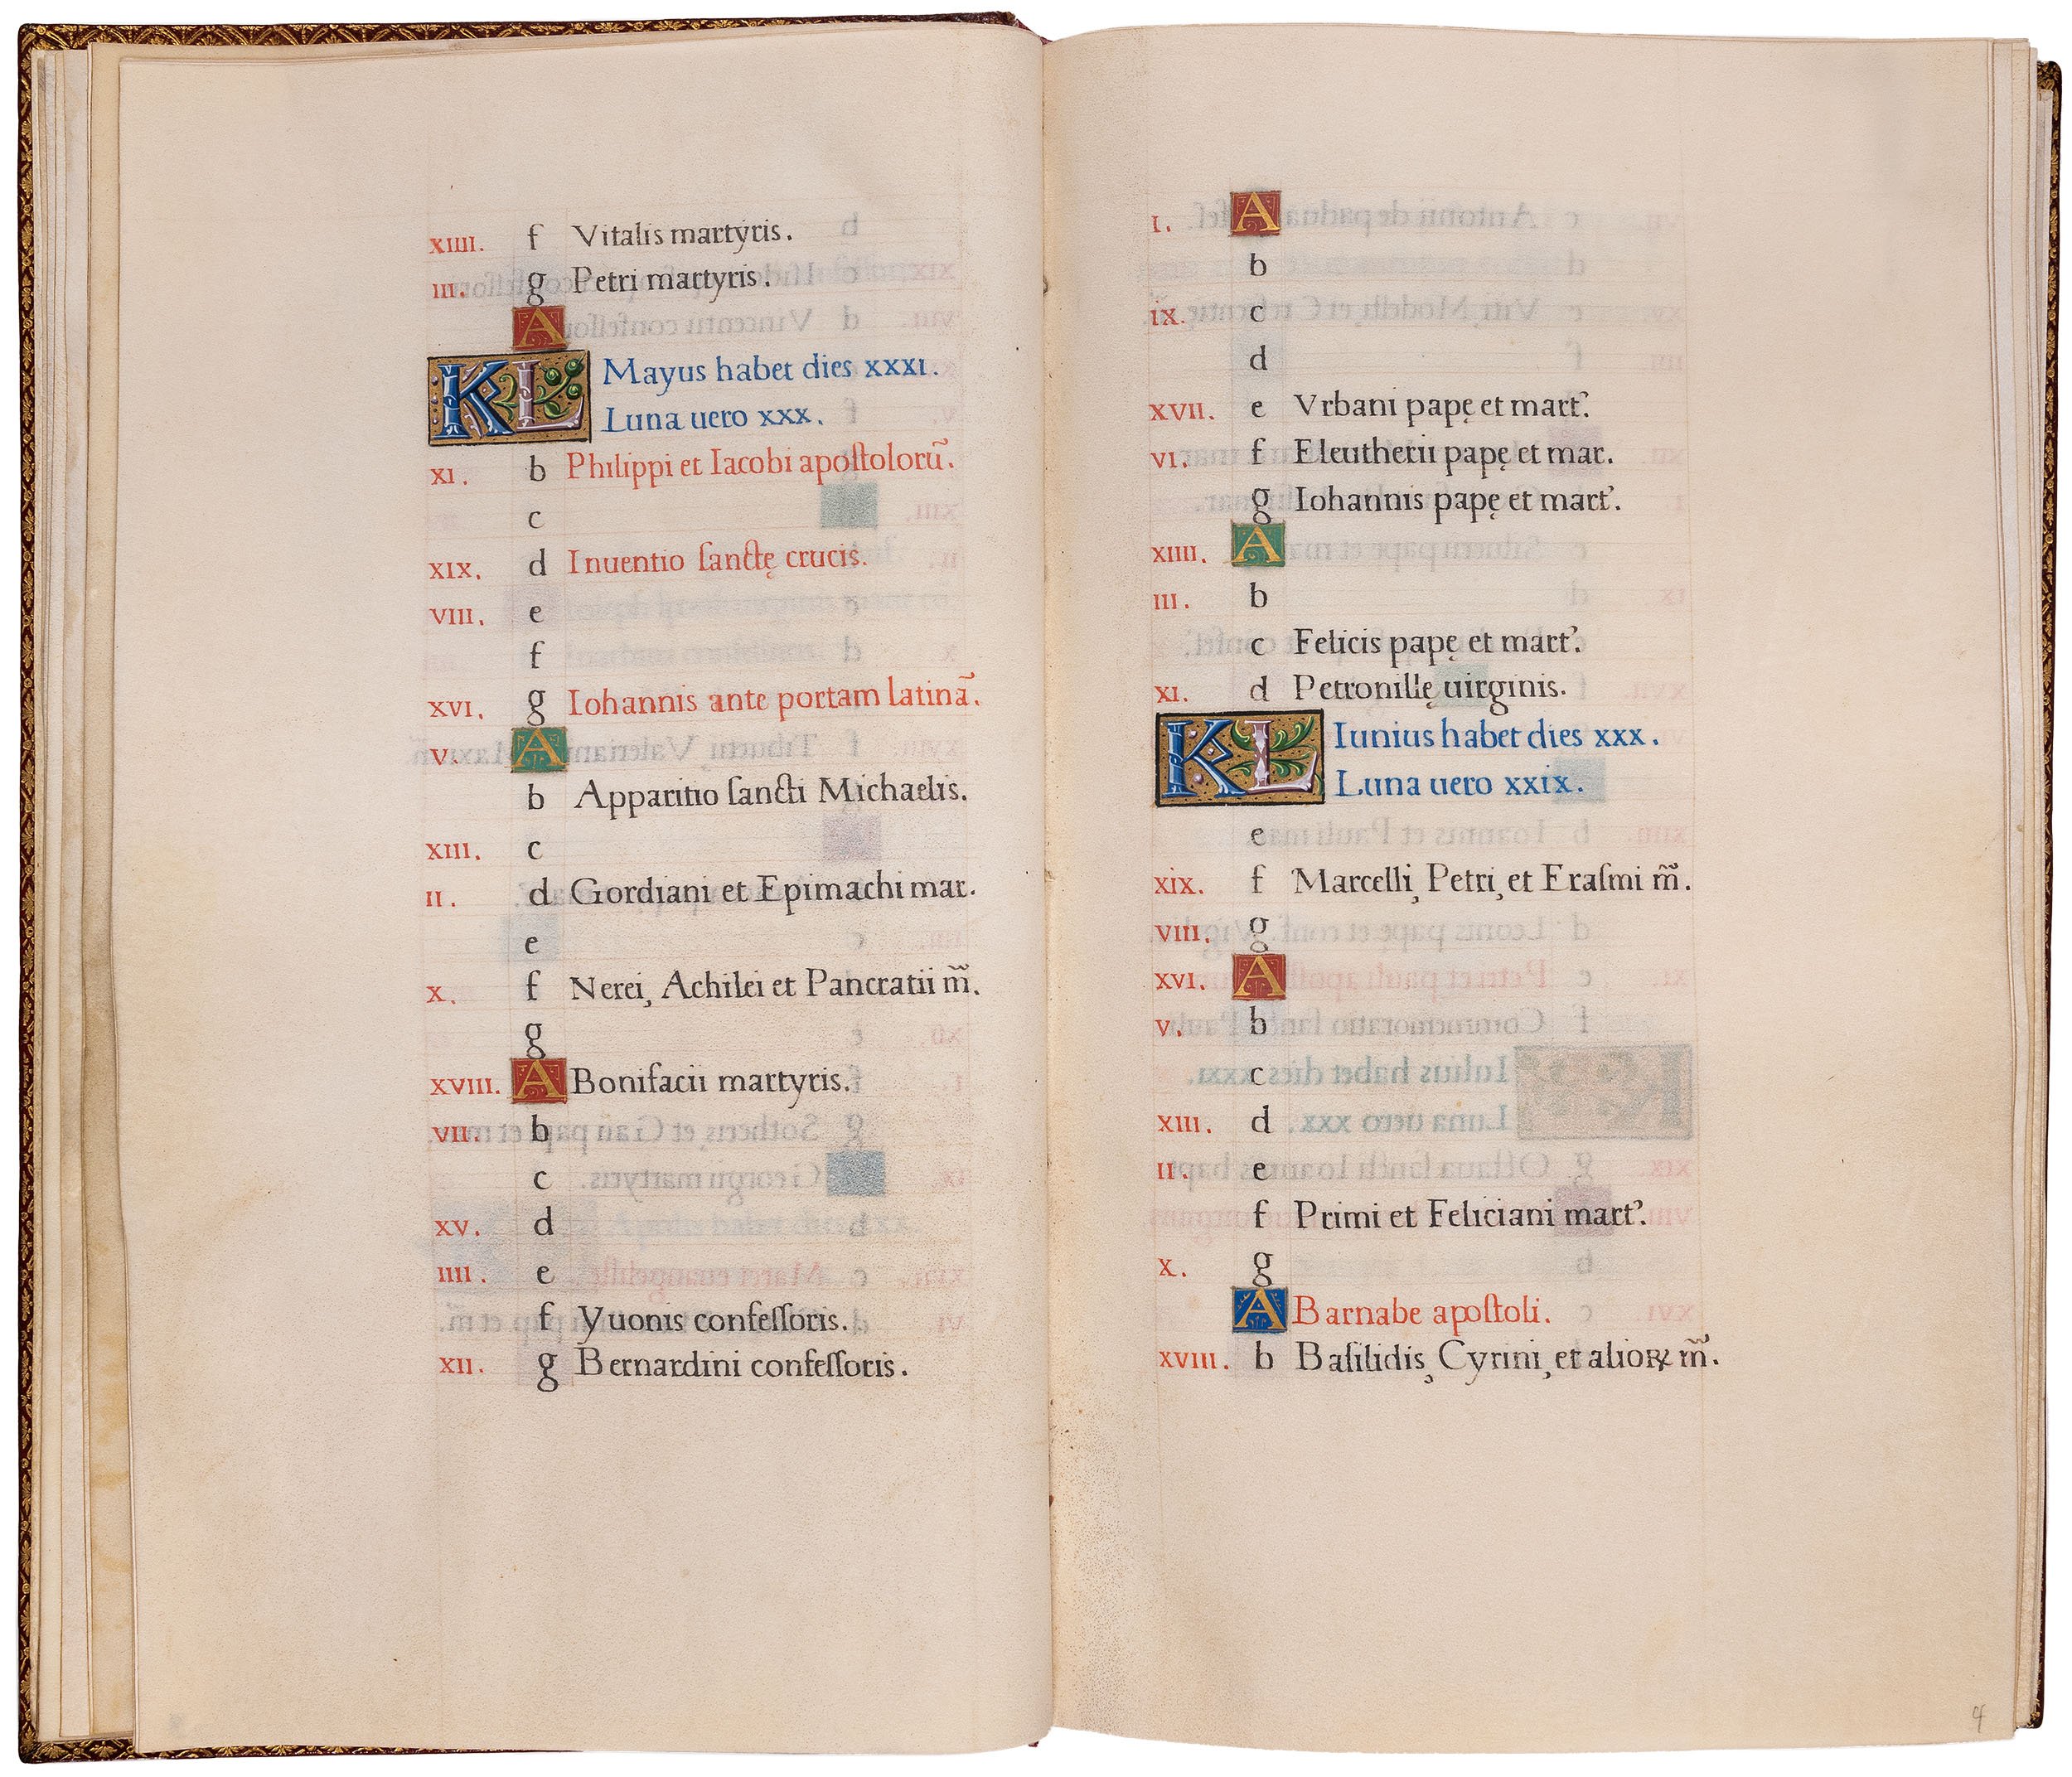 XIIII. f Vitalis martyris.
III. g Petri martyris.
A
KL Mayus habet dies XXXI.
Luna uero XXX.
XI. b Philippi et Iacobi apoſtolorũ.
c
XIX. d Inuentio ſanctę crucis.
VIII. e
f
XVI. g Iohannis ante portam latinã.
V. A
b Apparitio ſancti Michaelis.
XIII. c
II. d Gordiani et Epimachi mar.
e
X. f Nerei, Achilei et Pancratii m̃.
g
XVIII. A Bonifacii martyris.
VII. b
c
XV. d
IIII. e
f Yuonis confeſſoris.
XII. g Bernardini confeſſoris.
I. A
b
IX. c
d
XVII. e Vrbani papę et mart'.
VI. f Eleutherii papę et mar.
g Iohannis papę et mart'.
XIIII. A
III. b
c Felicis papę et mart'.
XI. d Petronillę uirginis.
KL Iunius habet dies XXX.
Luna uero XXIX.
e
XIX. f Marcelli, Petri, et Eraſmi m̃.
VIII. g
XVI. A
V. b
c
XIII. d
II. e
f Primi et Feliciani mart'.
X. g
A Barnabe apoſtoli.
XVIII. b Baſilidis, Cyrini, et alioꝝ m̃.
4